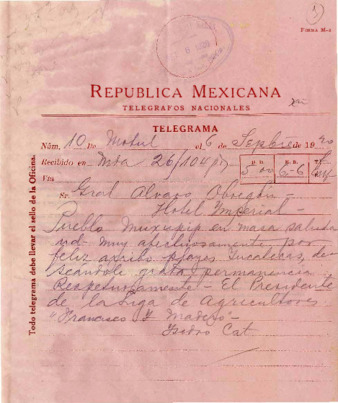 Forma M-1
REPUBLICA MEXICANA
TELEGRAFOS NACIONALES
TELEGRAMA
Núm. 10 De Motul el 6 de Sepbre de 1920
Recibido en Mda 26/104
Vía
Sr. Gral Alvaro Obregón
Hotel Imperial-
Pueblo Muxupip en masa saluda
ud- muy afectuosamente, por
feliz arribo playas yucatecas, de-
seandole grata permanencia-
Respetuosamente- El Presidente
de la Liga de Agricultores
"Francisco I. Madero"-
Isidro Cat
Todo telegrama debe llevar el sello de la Oficina.